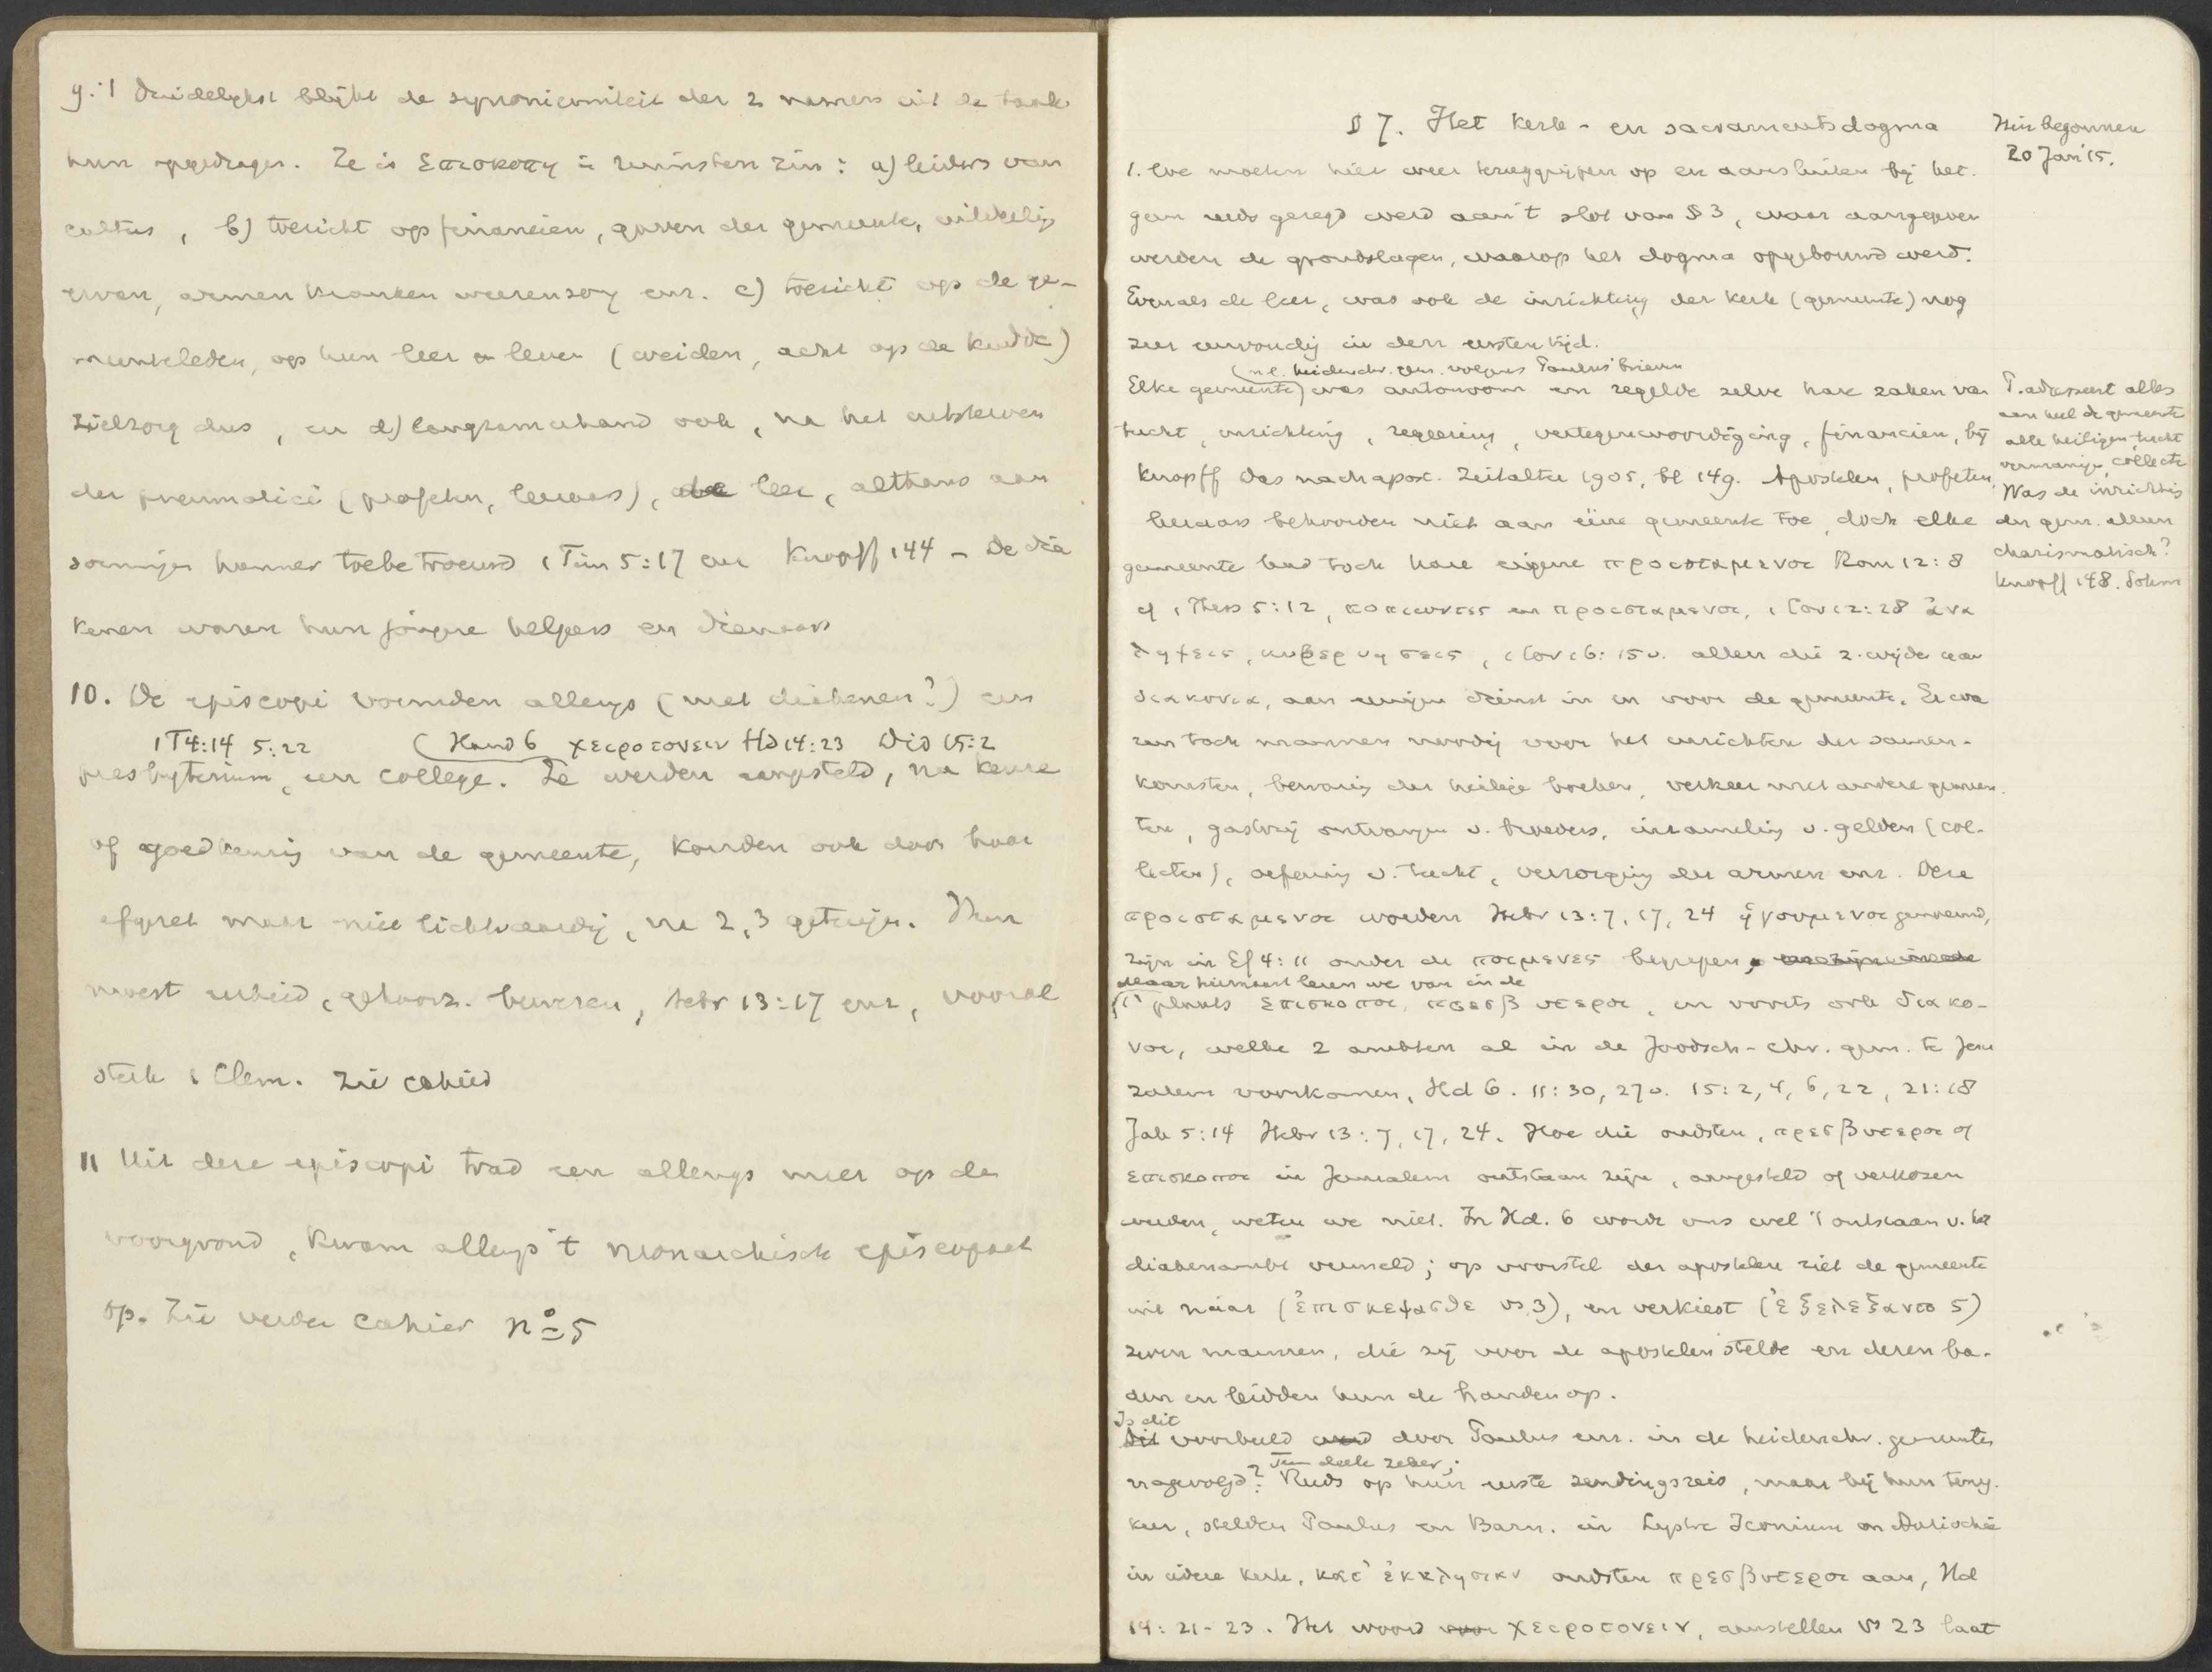 9. 't duidelykst blijkt de synoniemiteit der 2 namen uit de taak
hun opgedragen. Ze is επισκοπη in ruimsten zin: a) leiders van
cultus, b) toezicht op financien, gaven der gemeente, uitdeeling
ervan, armen kranken weezenzorg enz. c) toezicht op de ge-
meenteleden, op hun leer en leven (weiden, acht op de kudde)
zielzorg dus, en d) langzamerhand ook, na het uitsterven
der pneumatici (profeten, leeraars), de leer, althans aan
sommigen hunner toebetrouwd 1 Tim 5:17 en Knopff 144 – De dia
kenen waren hun jongere helpers en dienaars
10. De episcopi vormden allengs (met diakenen?) een
1 T 4:14 5:22 (Hand 6 χειροτονειν Hd 14:23 Did 15:2
presbyterium, een college. Ze werden aangesteld, na keuze
of goedkeuring van de gemeente, konden ook door haar
afgezet maar niet lichtvaardig, na 2, 3 getuigen. Men
moest eerbied, gehoorz. bewijzen, Hebr 13:17 enz, vooral
sterk 1 Clem. Zie cahier
11 Uit deze episcopi trad een allengs meer op de
voorgrond, kwam allengs 't monarchisch episcopaat
op. Zie verder cahier No 5
§ 7. Het kerk- en sacramentsdogma
Hier begonnen
20 Jan '15.
1. We moeten hier weer teruggrijpen op en aansluiten bij het-
geen reeds gezegd werd aan 't slot van § 3, waar aangegeven
werden de grondslagen, waarop het dogma opgebouwd werd.
Evenals de leer, was ook de inrichting der kerk (gemeente) nog
zeer eenvoudig in den eersten tijd.
(n.l. heidenchr. gem. volgens Paulus' brieven
Elke gemeente) was autonoom en regelde zelve hare zaken van
tucht, inrichting, regeering, vertegenwoordiging, financien, bij
Knopff Das nachapost. Zeitalter 1905, bl 149. Apostelen, profeten,
leeraars behoorden niet aan ééne gemeente toe, doch elke
gemeente had toch hare eigene προισταμενοι Rom 12:8
cf 1 Thess 5:12, κοπιωντες en προισταμενοι, 1 Cor 12:28 ἀντι
ληψεις, κυβερνησεις, 1 Cor 16:15v. allen die z. wijden aan
διακονια, aan eenigen dienst in en voor de gemeente. Er wa
ren toch mannen noodig voor het inrichten der samen-
komsten, bewaring der heilige boeken, verkeer met andere gemeen-
ten, gastvrij ontvangen v. broeders, inzameling v. gelden (col-
lecten), oefening v. tucht, verzorging der armen enz. Deze
προισταμενοι worden Hebr 13:7, 17, 24 ἡγουμενοι genoemd,
zijn in Ef 4:11 onder de ποιμενες begrepen, en zijn in de
Maar hiernaast lezen we van in de
1e plaats επισκοποι, πρεσβυτεροι, en voorts ook διακο-
νοι, welke 2 ambten al in de Joodsch-chr. gem. te Jeru
zalem voorkomen, Hd 6. 11:30, 27v. 15:2, 4, 6, 22, 21:18
Jak 5:14 Hebr 13:7, 17, 24. Hoe die oudsten, πρεσβυτεροι of
επισκοποι in Jeruzalem ontstaan zijn, aangesteld of verkozen
werden, weten we niet. In Hd. 6 wordt ons wel 't ontstaan v. het
diakenambt vermeld; op voorstel der apostelen ziet de gemeente
uit naar (ἐπισκεψασθε vs 3), en verkiest (ἐξελεξαντο 5)
zeven mannen, die zij voor de apostelen stelde en deren ba-
den en leidden hun de handen op.
Is dit
Dit voorbeeld werd door Paulus enz. in de heidenchr. gemeenten
Ten deele zeker;
nagevolgd? Reeds op hun eerste zendingsreis, maar bij hun terug-
keer, stelden Paulus en Barn. in Lystre Iconium en Antiochië
in iedere kerk, κατ' ἐκκλησιαν oudsten πρεσβυτεροι aan, Hd
14:21-23. Het woord voor χειροτονειν, aanstellen vs 23 laat
P. adresseert alles
aan heel de gemeente
alle heiligen, tucht
vermaning, collecte
Was de inrichting
der gem. alleen
charismatisch?
Knopff 148. Sohm